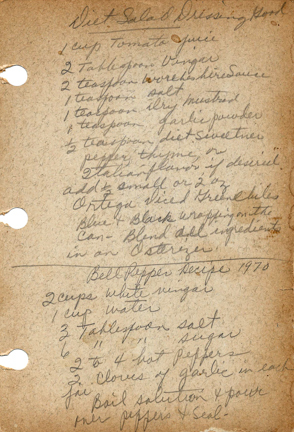 Diet Salad Dressing Good
1 cup Tomato juice
2 Tablespoon Vingar
2 teaspoon worchershire Sauce
1 teaspoon salt
1 teaspoon dry mustard
1 teaspoon garlic powder
½ teaspoon diet Sweetner
pepper, thyme, or
Italian flavor if desired
add ½ small or 2 oz
Ortega diced Green chiles
Blue & Black wrapping on the
can - Blend all ingredients
in an Osterizer.
Bell Pepper Recipe 1970
2 cups white vingar
1 cup water
3 Tablespoon salt
6 " " sugar
2 to 4 hot Peppers
2 cloves of garlic in each
jar
Boil solution & pour
over peppers & Seal-